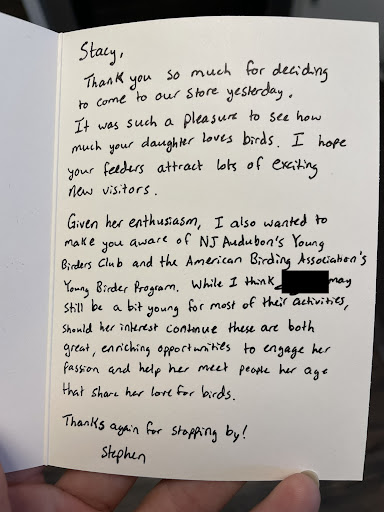 Stacy,
Thank you so much for deciding
to come to our store yesterday.
It was such a pleasure to see how
much your daughter loves birds. I hope
your feeders attract lots of exciting
new visitors.
Given her enthusiasm, I also wanted to
make you aware of NJ Audubon's Young
Birders Club and the American Birding Association's
Young Birder Program. While I think may
still be a bit young for most of their activities,
should her interest continue these are both
great, enriching opportunities to engage her
passion and help her meet people her age
that share her love for birds.
Thanks again for stopping by!
Stephen